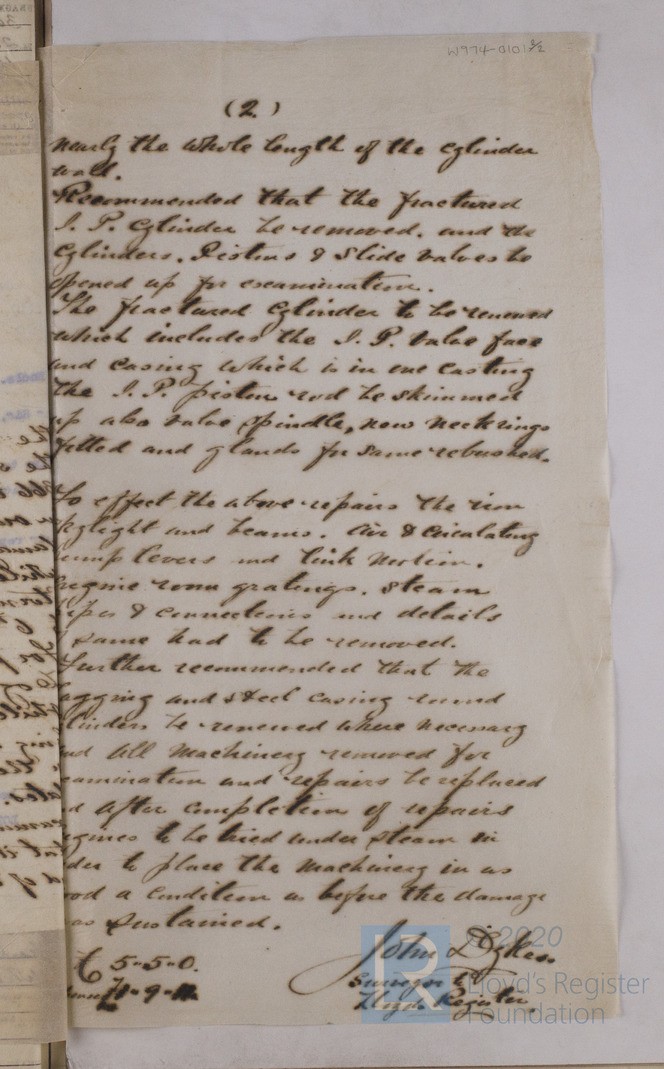 W974-0101 2/2
(2)
nearly the whole length of the cylinder
wall.
Recommended that the fractured
I. P. Cylinder be removed, and the
Cylinders, Pistons & Slide valves be
opened up for examination.
The fractured Cylinder to be renewed
which includes the I. P. Valve face
and casing which is in one casting
The I. P. piston rod be skimmed
up also valve spindle, new neckrings
fitted and glands for same rebushed.
To effect the above repairs the iron
skylight and beams, Air & Circulating
pump levers and link motion,
Engine room gratings, Steam
pipes & connections and details
same had to be removed.
Further recommended that the
lagging and steel casing round
linders be renewed where necessary
and all Machinery removed for
xamination and repairs be replaced
d after completion of repairs
gines to be tried under steam in
der to place the machinery in as
ood a condition as before the damage
as sustained.
5-5-0.
John Dykes.
Surveyor to
Lloyds Register
© 2020
LR
Lloyd's Register
Foundation